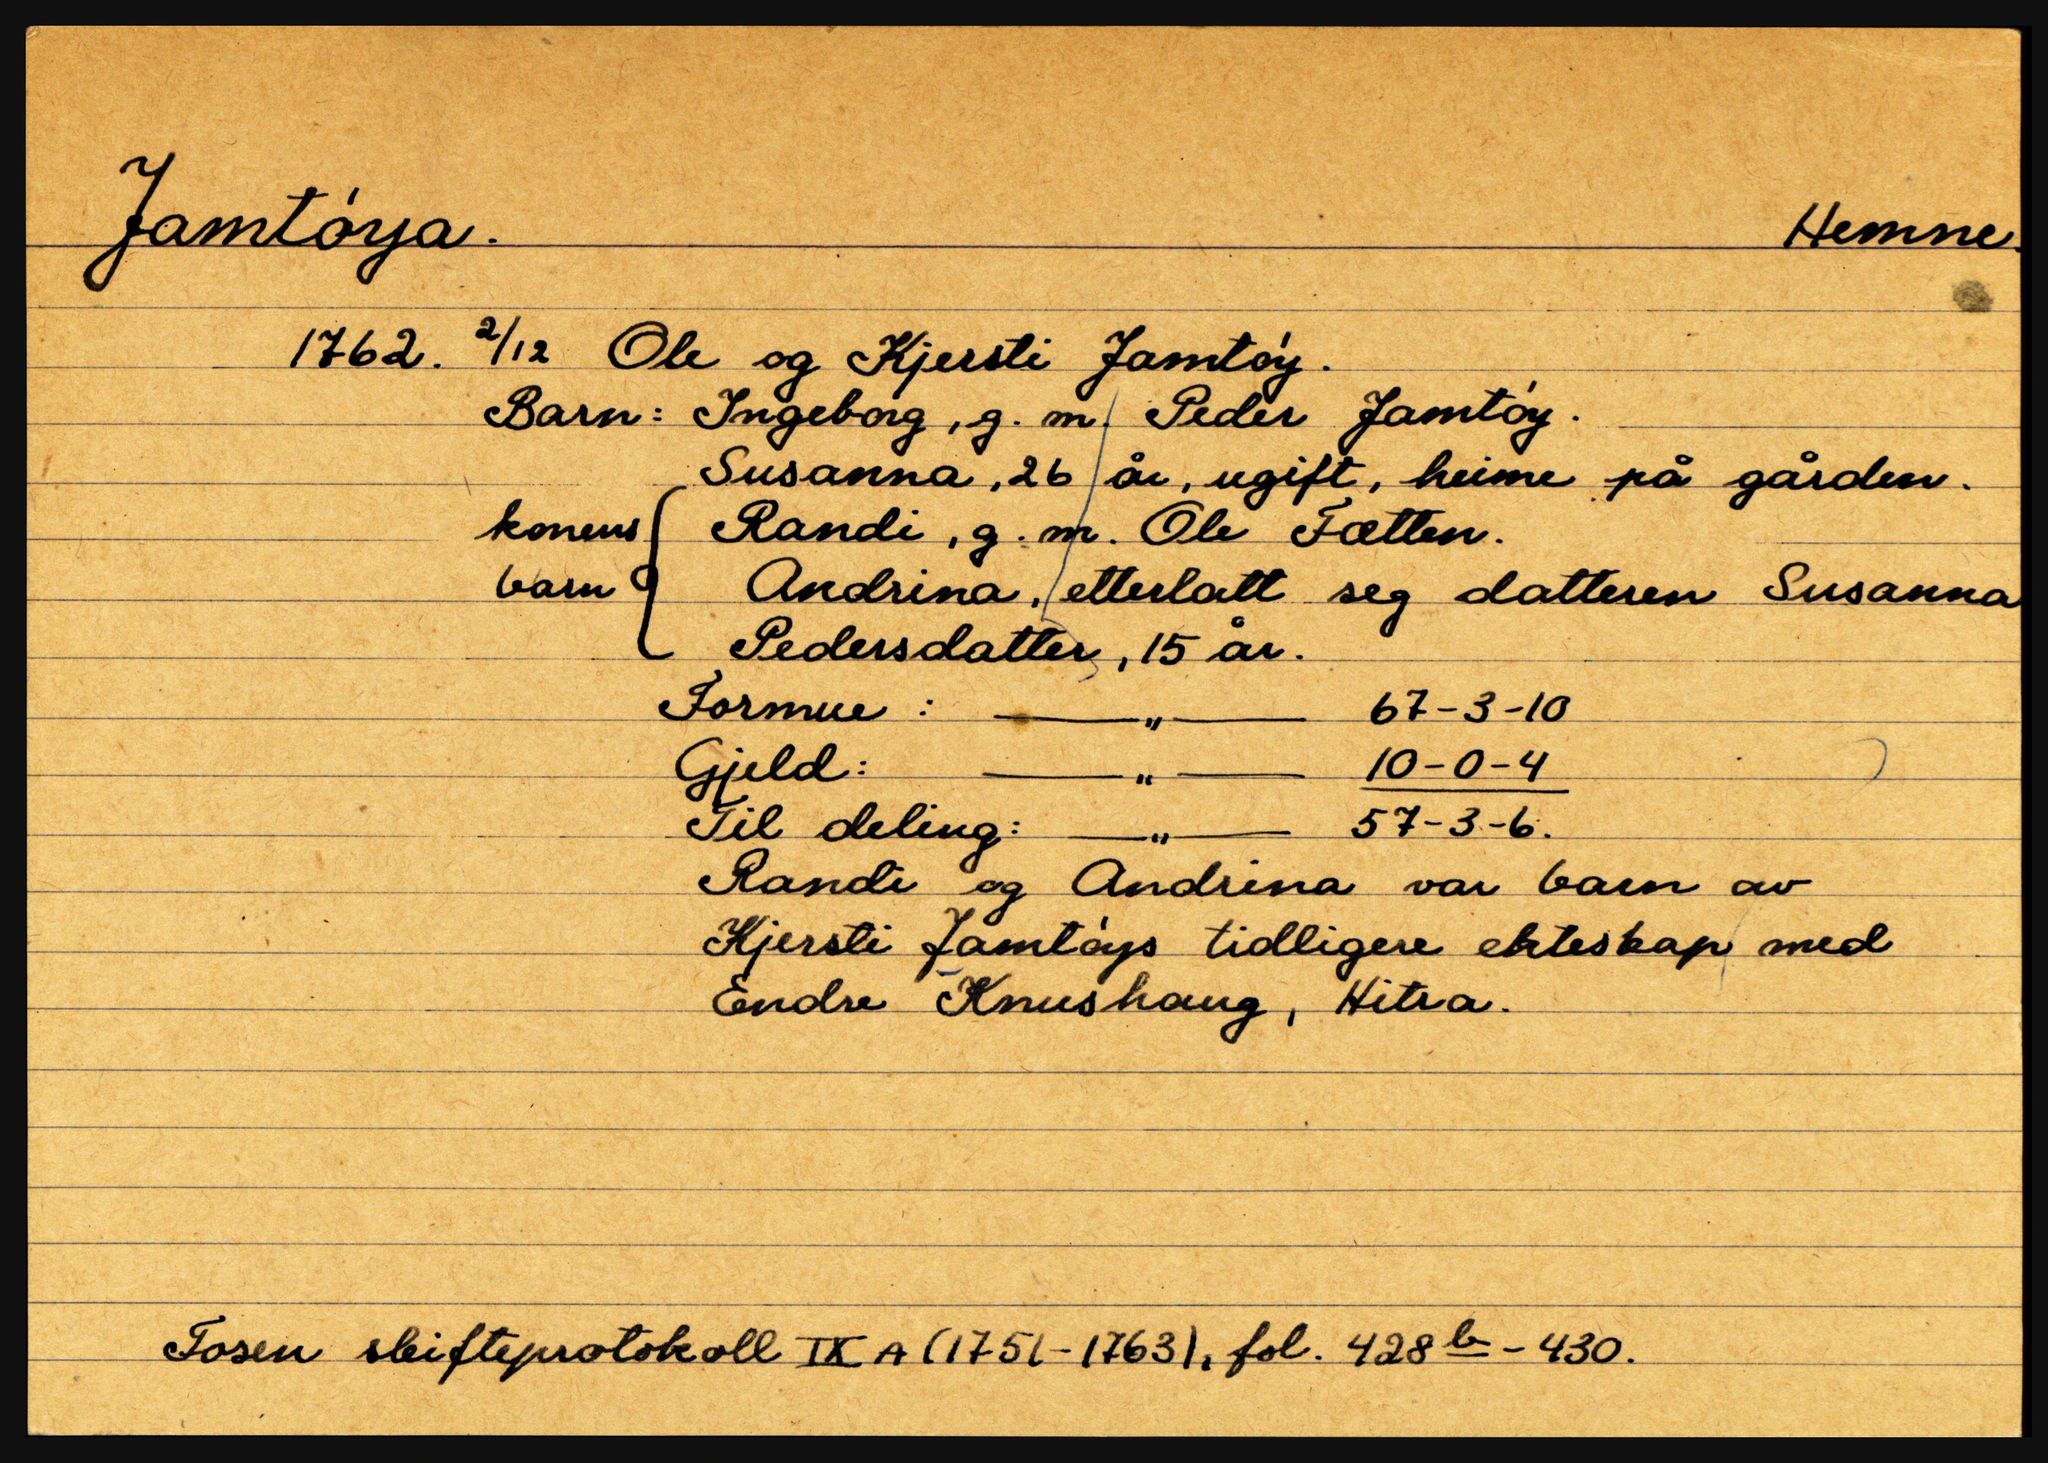 Jamtóya. Hemne.
1762. 2/12 Ole og Kjersti Jamtóy.
Barn: Ingeborg, g. m. Peder Jamtóy.
Susanna, 26 år, ugift, heime på gården.
konens Randi, g. m. Ole Fætten.
barn Andrina, etterlatt seg datteren Susanna
Pedersdatter, 15 år.
Formue: —„— 67-3-10
Gjeld: —„— 10-0-4
Til deling: —„— 57-3-6.
Randi og Andrina var barn av
Kjersti Jamtóys tidligere ekteskap med
Endre Knushaug, Hitra.
Fosen skifteprotokoll IX A (1751-1763), fol. 428 b - 430.